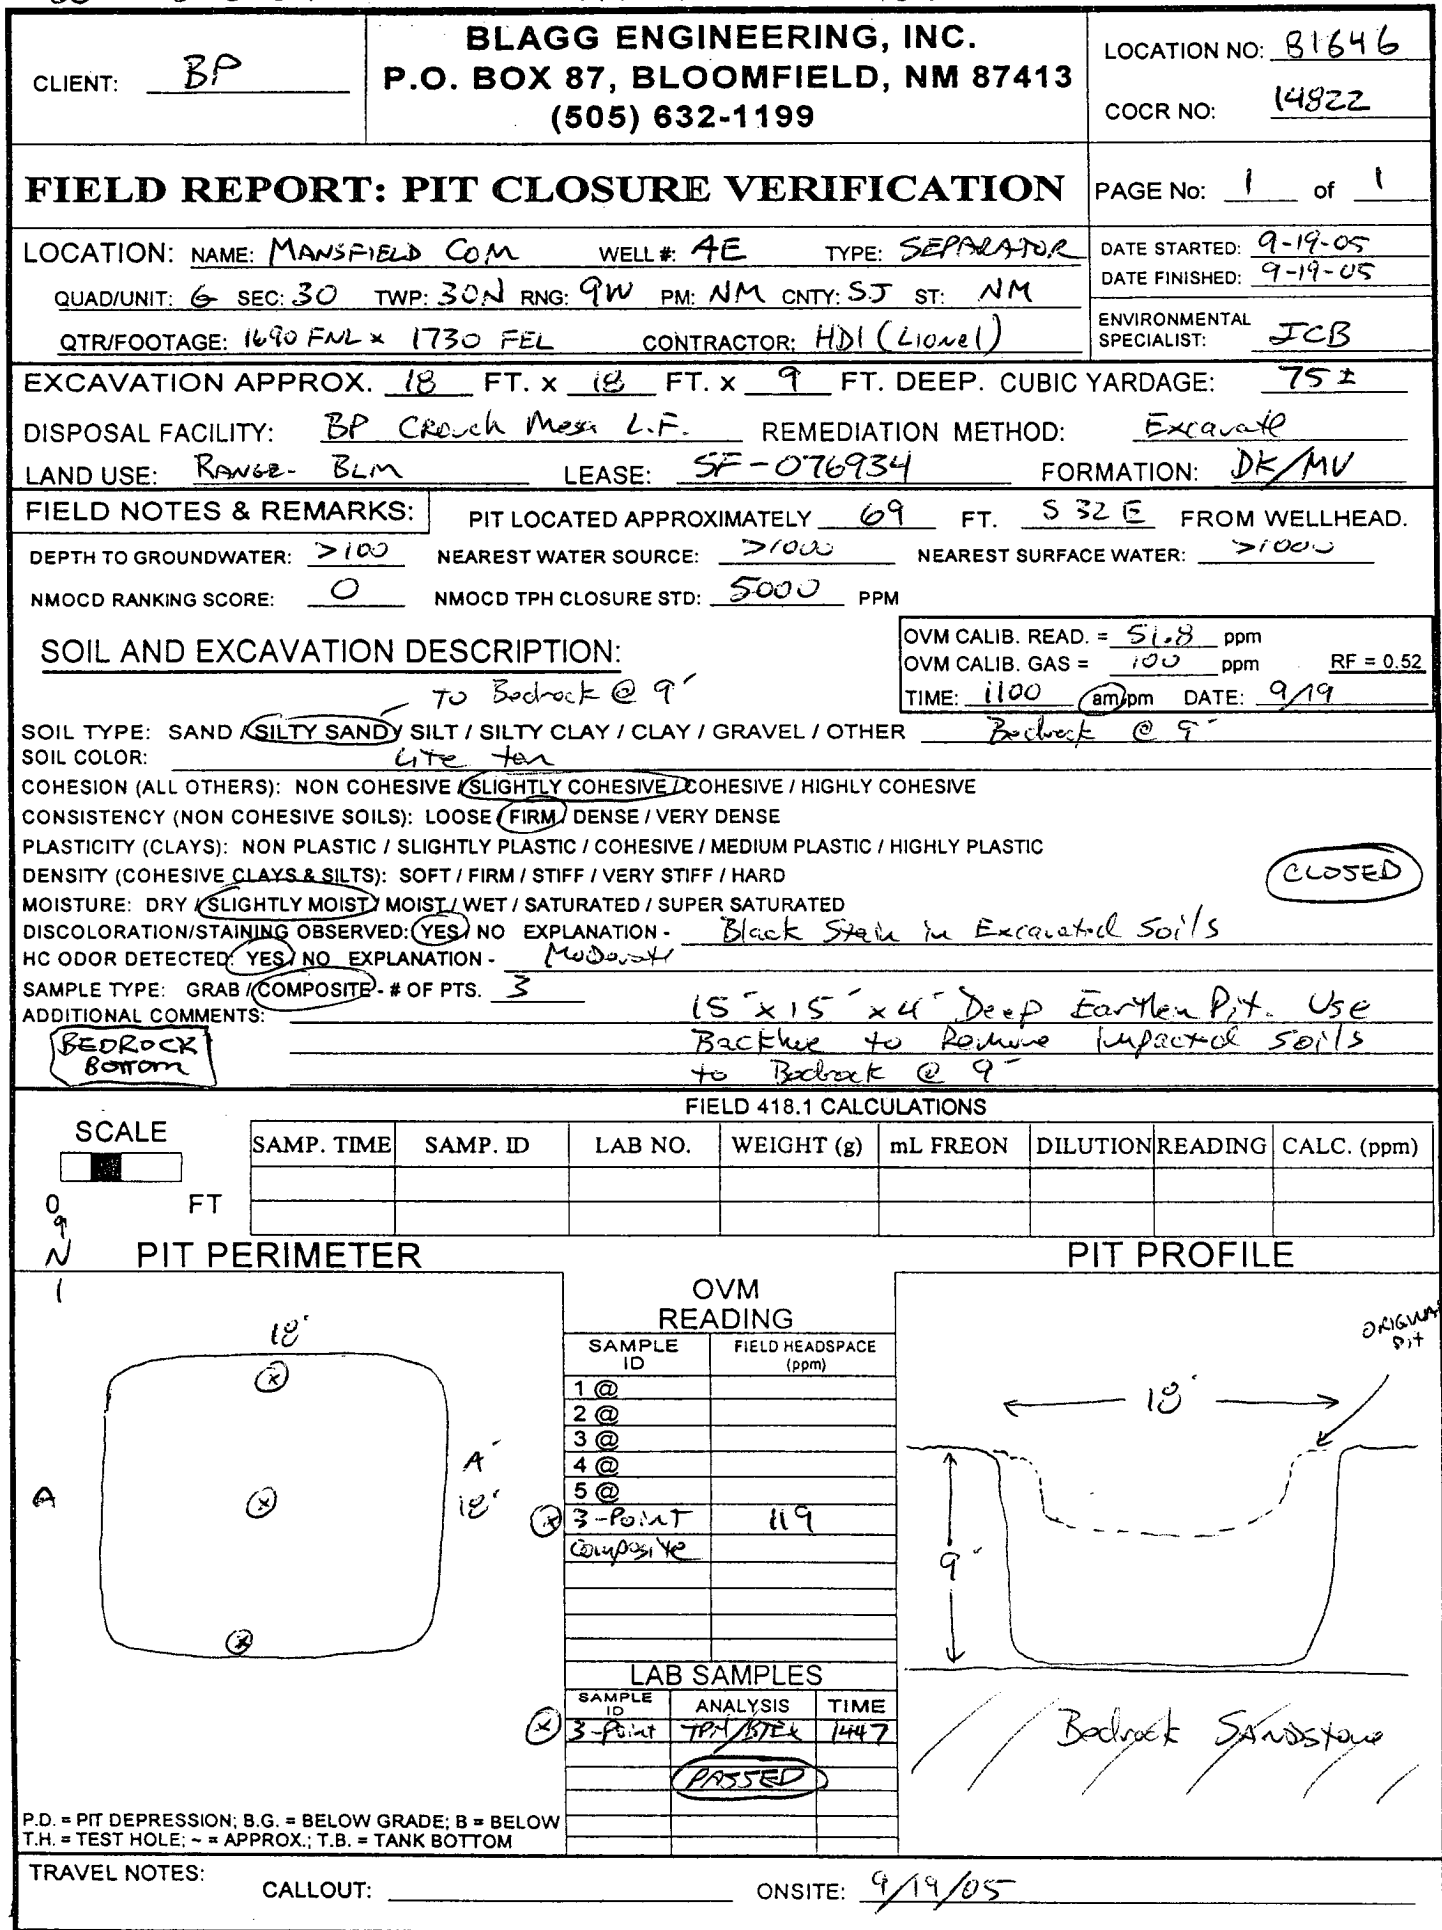 BLAGG ENGINEERING, INC.
CLIENT: BP
P.O. BOX 87, BLOOMFIELD, NM 87413
(505) 632-1199
LOCATION NO: B1646
COCR NO: 14822
FIELD REPORT: PIT CLOSURE VERIFICATION
PAGE No: 1 of 1
LOCATION: NAME: MANSFIELD COM WELL #: 4E TYPE: SEPARATOR
DATE STARTED: 9-19-05
DATE FINISHED: 9-19-05
QUAD/UNIT: G SEC: 30 TWP: 30N RNG: 9W PM: NM CNTY: SJ ST: NM
QTR/FOOTAGE: 1690 FNL x 1730 FEL CONTRACTOR: HDI (Lionel)
ENVIRONMENTAL
SPECIALIST: JCB
EXCAVATION APPROX. 18 FT. x 18 FT. x 9 FT. DEEP. CUBIC YARDAGE: 75 ±
DISPOSAL FACILITY: BP Crouch Mesa L.F. REMEDIATION METHOD: Excavate
LAND USE: RANGE - BLM LEASE: SF-076934 FORMATION: DK/MV
FIELD NOTES & REMARKS: PIT LOCATED APPROXIMATELY 69 FT. S 32 E FROM WELLHEAD.
DEPTH TO GROUNDWATER: >100 NEAREST WATER SOURCE: >1000 NEAREST SURFACE WATER: >1000
NMOCD RANKING SCORE: 0 NMOCD TPH CLOSURE STD: 5000 PPM
SOIL AND EXCAVATION DESCRIPTION:
OVM CALIB. READ. = 51.8 ppm
OVM CALIB. GAS = 100 ppm RF = 0.52
TIME: 1100 am/pm DATE: 9/19
TO Bedrock @ 9'
SOIL TYPE: SAND / SILTY SAND / SILT / SILTY CLAY / CLAY / GRAVEL / OTHER Bedrock @ 9'
SOIL COLOR: Lite tan
COHESION (ALL OTHERS): NON COHESIVE / SLIGHTLY COHESIVE / COHESIVE / HIGHLY COHESIVE
CONSISTENCY (NON COHESIVE SOILS): LOOSE / FIRM / DENSE / VERY DENSE
PLASTICITY (CLAYS): NON PLASTIC / SLIGHTLY PLASTIC / COHESIVE / MEDIUM PLASTIC / HIGHLY PLASTIC
DENSITY (COHESIVE CLAYS & SILTS): SOFT / FIRM / STIFF / VERY STIFF / HARD
CLOSED
MOISTURE: DRY / SLIGHTLY MOIST / MOIST / WET / SATURATED / SUPER SATURATED
DISCOLORATION/STAINING OBSERVED: YES / NO EXPLANATION - Black Stain in Excavated Soils
HC ODOR DETECTED: YES / NO EXPLANATION - Moderate
SAMPLE TYPE: GRAB / COMPOSITE - # OF PTS. 3
ADDITIONAL COMMENTS: 15' x 15' x 4' Deep Earthen Pit. Use
Backhoe to Remove Impacted Soils
to Bedrock @ 9'
BEDROCK
Bottom
FIELD 418.1 CALCULATIONS
SCALE
SAMP. TIME SAMP. ID LAB NO. WEIGHT (g) mL FREON DILUTION READING CALC. (ppm)
0 FT
N
PIT PERIMETER
PIT PROFILE
OVM
READING
SAMPLE ID FIELD HEADSPACE (ppm)
1 @
2 @
3 @
4 @
5 @
3-Point 119
Composite
18'
A'
A
18'
x
x
x
x
LAB SAMPLES
SAMPLE ID ANALYSIS TIME
x 3-Point TPH/BTEX 1447
PASSED
ORIGINAL
Pit
18'
9'
Bedrock SANDSTONE
P.D. = PIT DEPRESSION; B.G. = BELOW GRADE; B = BELOW
T.H. = TEST HOLE; ~ = APPROX.; T.B. = TANK BOTTOM
TRAVEL NOTES:
CALLOUT: ONSITE: 9/19/05